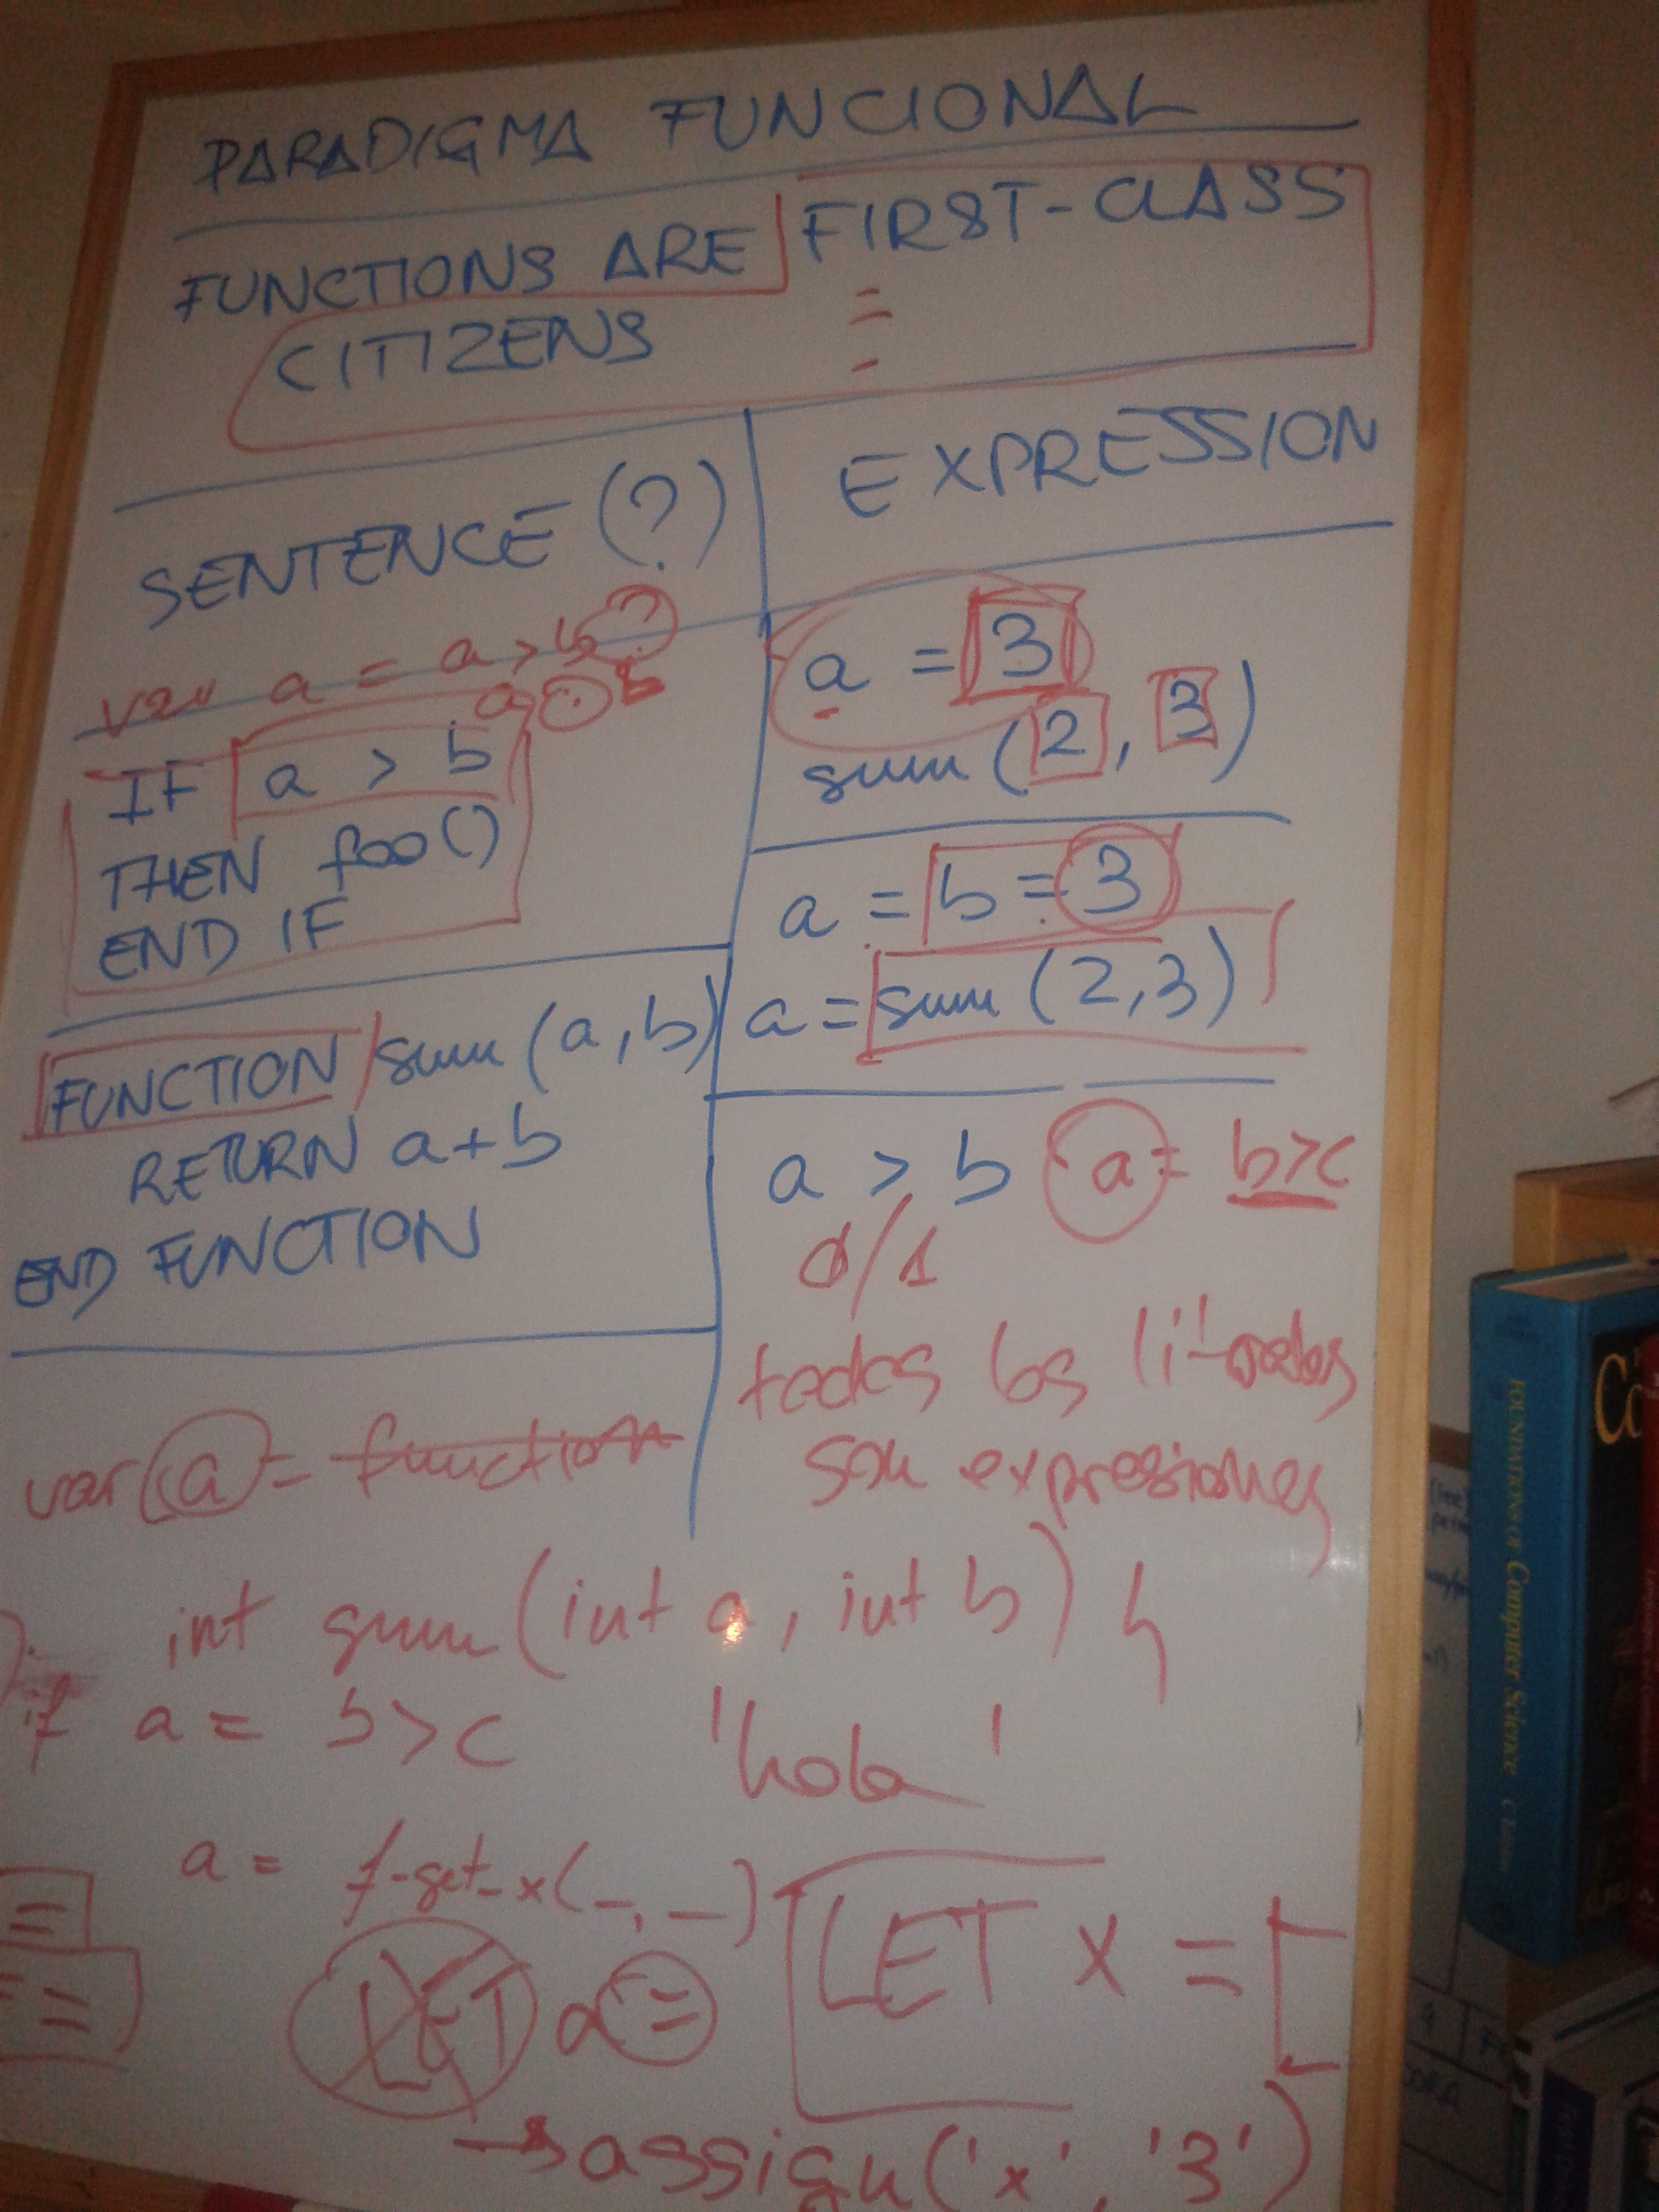 PARADIGMA FUNCIONAL
FUNCTIONS ARE FIRST-CLASS
CITIZENS
SENTENCE (?)
var a = a > b ?
a : b
IF a > b
THEN foo()
END IF
FUNCTION sum (a, b)
RETURN a + b
END FUNCTION
var a = function
EXPRESSION
a = 3
sum (2, 3)
a = b = 3
a = sum (2, 3)
a > b a = b > c
0/1
todos los literales
son expresiones
int sum (int a, int b) {
if a = b > c 'hola'
a = f-get-x(_, _)
LET a =
LET x = [
→ assign('x', '3')
FOUNDATIONS OF Computer Science